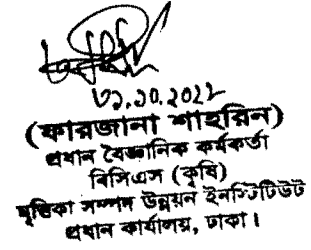 ৩১.১০.২০২২
(ফারজানা শাহরিন)
প্রধান বৈজ্ঞানিক কর্মকর্তা
বিসিএস (কৃষি)
মৃত্তিকা সম্পদ উন্নয়ন ইনস্টিটিউট
প্রধান কার্যালয়, ঢাকা।